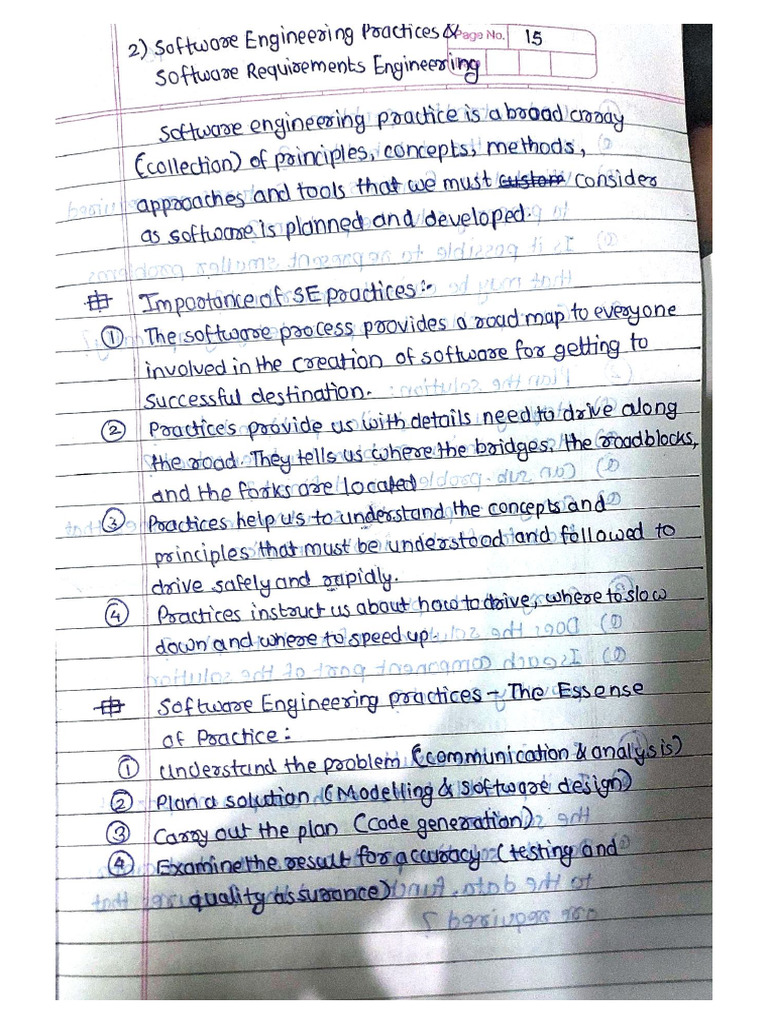 2) Software Engineering Practices &
Page No. 15
Software Requirements Engineering
Software engineering practice is a broad crray
(collection) of principles, concepts, methods,
approaches and tools that we must custom consider
as software is planned and developed.
Importance of SE practices:-
① The software process provides a road map to everyone
involved in the creation of software for getting to
successful destination.
② Practices provide us with details need to drive along
the road. They tells us where the bridges, the roadblocks,
and the forks are located
③ Practices help us to understand the concepts and
principles that must be understood and followed to
drive safely and rapidly.
④ Practices instruct us about how to drive, where to slow
down and where to speed up.
Software Engineering practices - The Essense
of Practice:
① Understand the problem (communication & analysis)
② Plan a solution (Modelling & software design)
③ Carry out the plan (code generation)
④ Examine the result for accuracy (testing and
quality assurance)